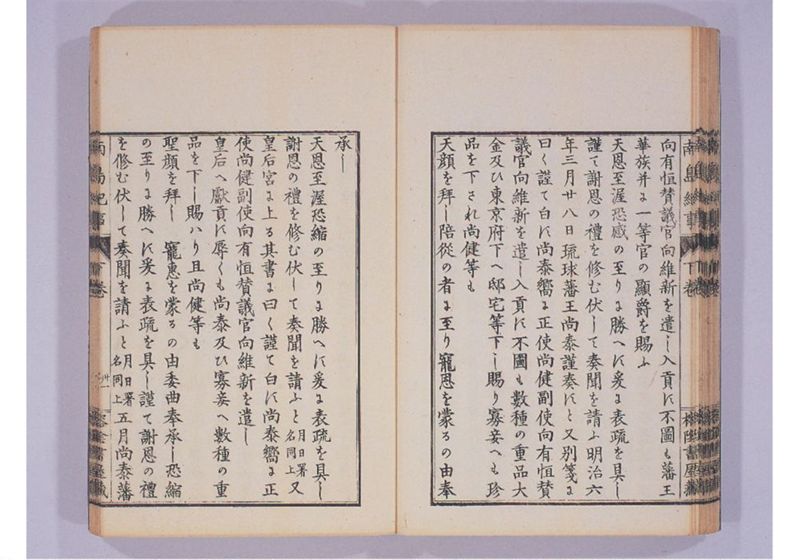 向有恒賛議官向維新を遣し入貢す不圖も藩王
華族并に一等官の顯爵を賜ふ
天恩至渥恐感の至りに勝へす爰に表疏を具し
謹て謝恩の禮を修む伏して奏聞を請ふ明治六
年三月廿八日琉球藩王尚泰謹奏すと又別箋に
曰く謹て白す尚泰嚮に正使尚健副使向有恒賛
議官向維新を遣し入貢す不圖も數種の重品大
金及ひ東京府下へ邸宅等下し賜り寡妾へも珍
品を下され尚健等も
天顔を拜し陪從の者に至り寵恩を蒙るの由奉
南島紀事
下巻
承し
天恩至渥恐縮の至りに勝へす爰に表疏を具し
謝恩の禮を修む伏して奏聞を請ふと月日署名同上又
皇后宮に上る其書に曰く謹て白す尚泰嚮に正
使尚健副使向有恒賛議官向維新を遣し
皇后へ獻貢す辱くも尚泰及ひ寡妾へ數種の重
品を下し賜ハり且尚健等も
聖顔を拜し 寵惠を蒙るの由委曲奉承し恐縮
の至りに勝へす爰に表疏を具し謹て謝恩の禮
を修む伏して奏聞を請ふと月日署名同上五月尚泰藩
南島紀事
下巻